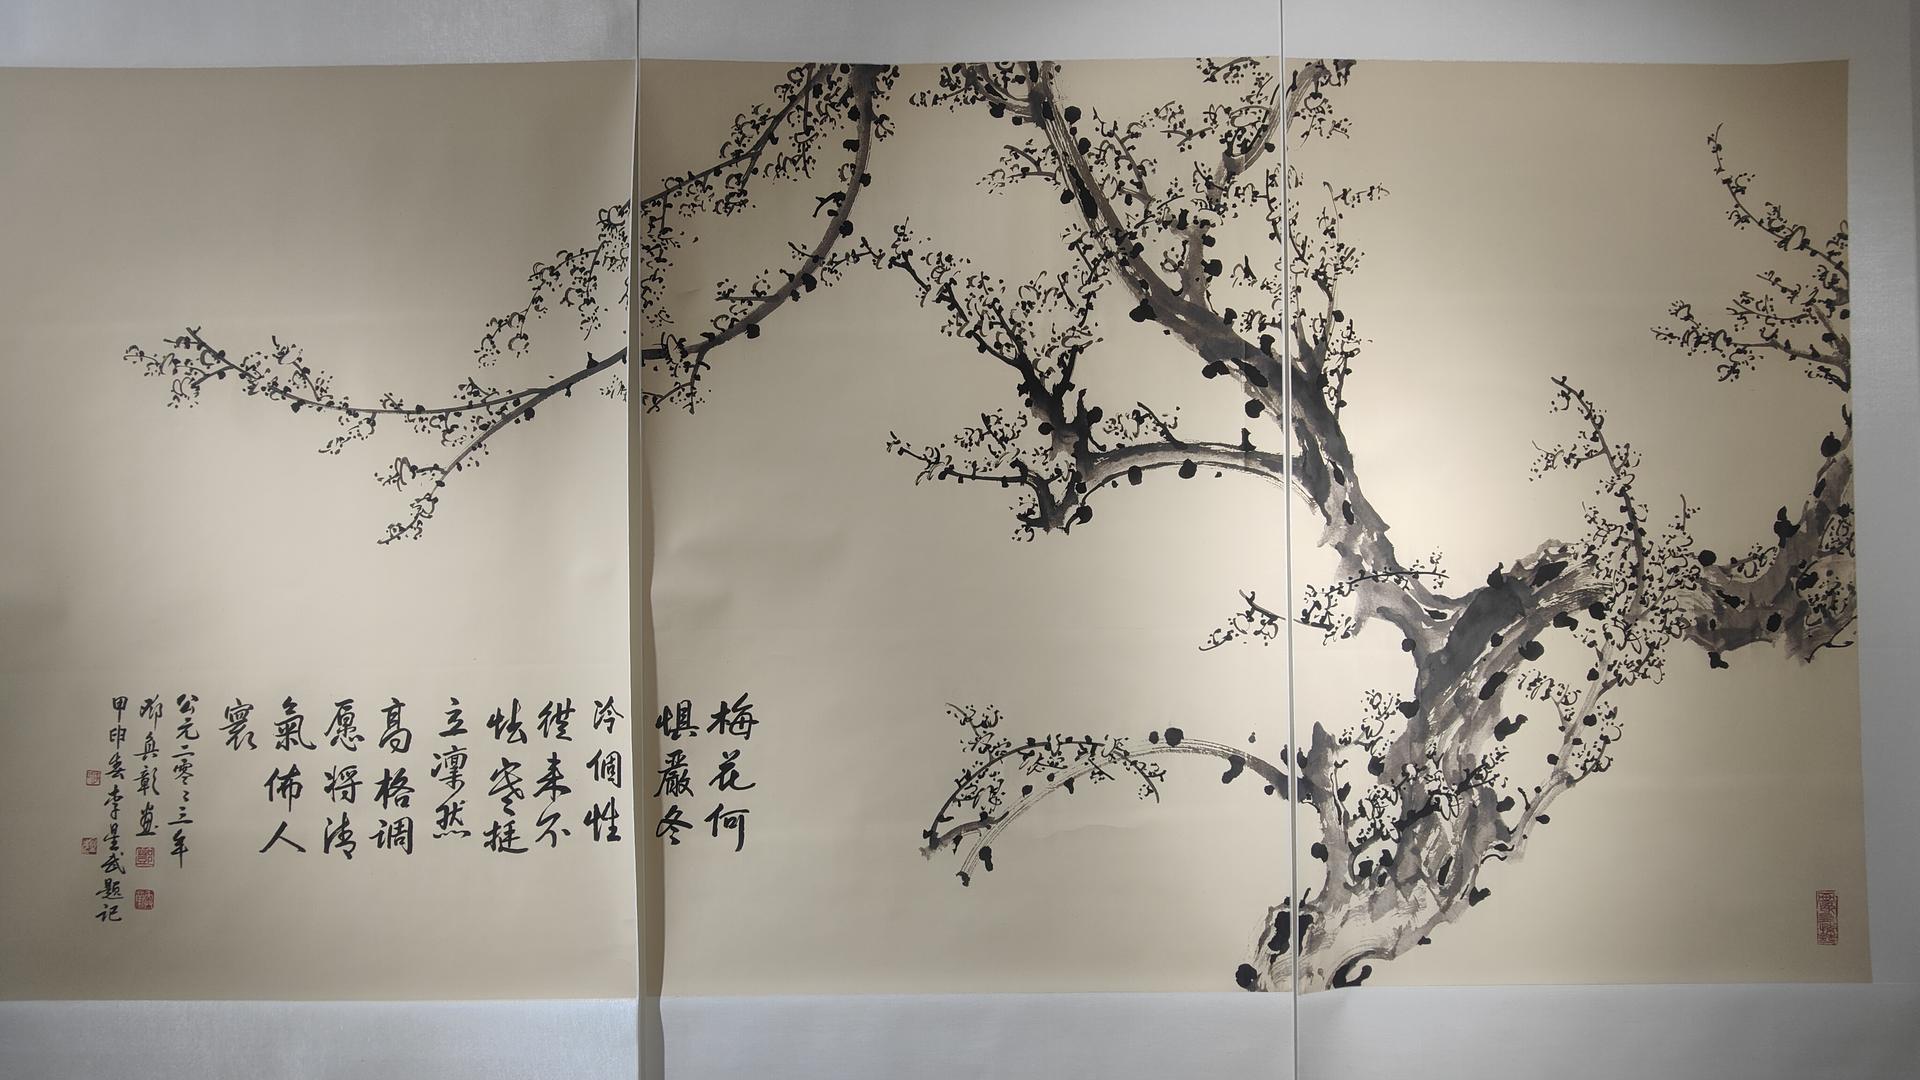 梅花何
惧嚴冬
冷個性
從来不
怯寒挺
立凜然
高格调
愿将清
氣佈人
寰
公元二零〻三年
鄧奐彰畫
甲申春李星武题记